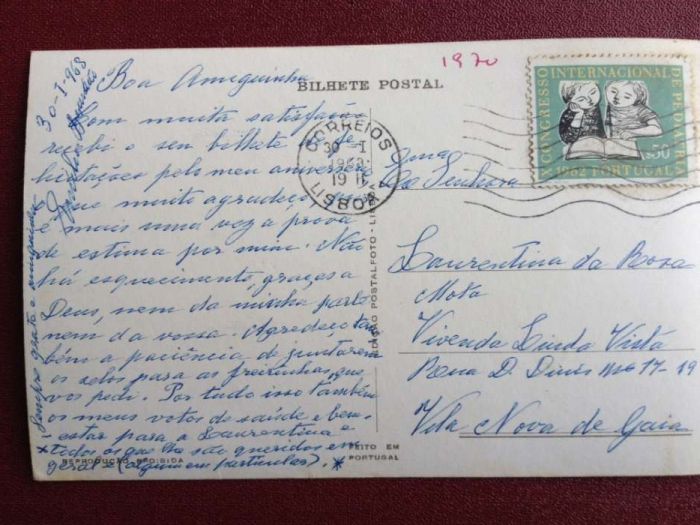 1970
BILHETE POSTAL
30-I-968
Boa Amiguinha
Com muita satisfação
recebi o seu bilhete de
felicitações pelo meu aniversário
que muito agradeço, que
é mais uma vez a prova
de estima por mim. Não
há esquecimento, graças a
Deus, nem da minha parte
nem da vossa. Agradeço tam
bém a paciência de juntarem
os selos para as freirinhas, que
vos pedi. Por tudo isso também
os meus votos de saúde e bem-
estar para a Laurentina e
todos os que lhe são queridos em
geral e (alguém em particular). *
Sempre grata e amiguinha
CORREIOS
30 -I
19
LISBOA
CONGRESSO INTERNACIONAL DE PEDIATRIA
1962 PORTUGAL
$50
Exma
Senhora
Laurentina da Rosa
Mota
Vivenda Linda Vista
Rua D. Dinis nº 17-19
Vila Nova de Gaia
EDIÇÃO POSTALFOTO - LISBOA
REPRODUÇÃO PROIBIDA
FEITO EM
PORTUGAL